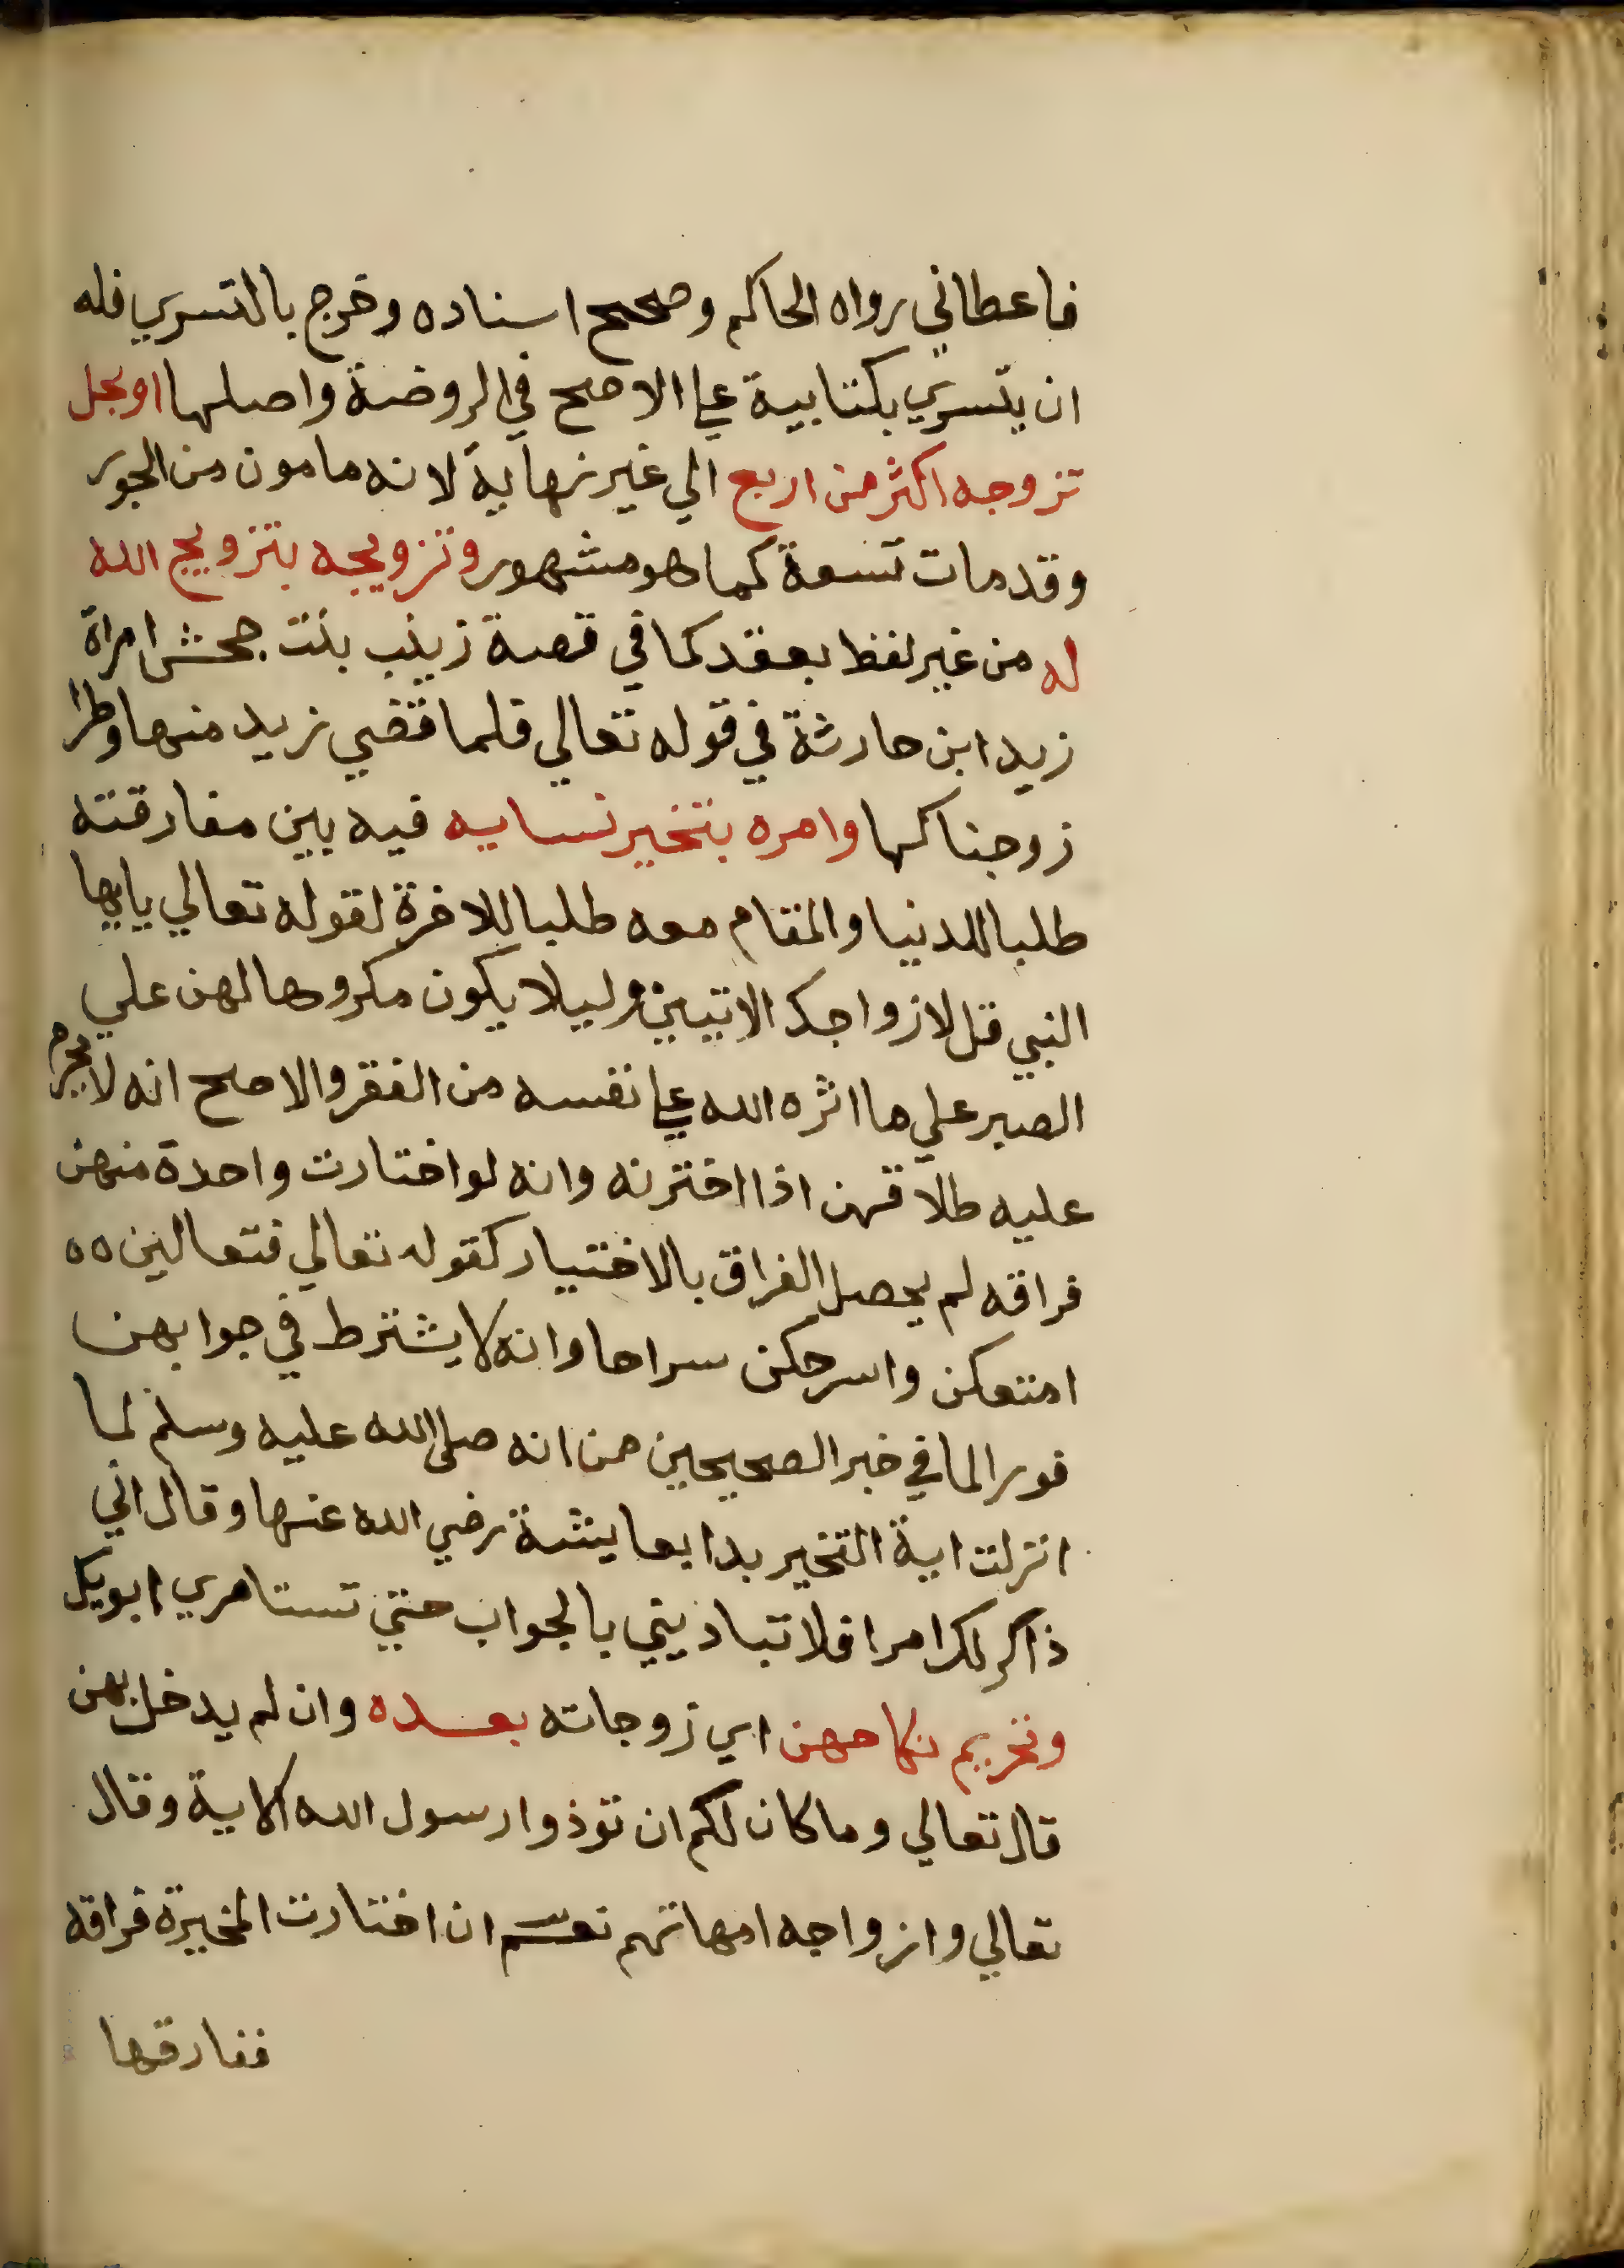 فاعطاني رواه الحاكم وصحح اسناده وخرج بالتسري فله
ان يتسري بكتابية علي الاصح في الروضة واصلها او بحل
تزوجه اكثر من اربع الي غير نهاية لانه مامون من الجور
وقد مات تسعة كما هو مشهور وتزويجه بتزويج الله
له من غير لفظ بعقد كما في قصة زينب بنت جحش امراة
زيد ابن حارثة في قوله تعالي فلما قضي زيد منها وطرا
زوجناكها وامره بتخير نسايه فيه بين مفارقته
طلبا للدنيا والمقام معه طلبا للاخرة لقوله تعالي يايها
النبي قل لازواجك الايتين وليلا يكون مكروها لهن علي
الصبر علي ما اثره الله علي نفسه من الفقر والاصح انه لا يحرم
عليه طلاقهن اذا اخترنه وانه لو اختارت واحدة منهن
فراقه لم يحصل الفراق بالاختيار كقوله تعالي فتعالين ٥٥
امتعكن واسرحكن سراحا وانه لا يشترط في جوابهن
فورا لما في خبر الصحيحين من انه صلى الله عليه وسلم لما
انزلت اية التخير بدا بعايشة رضي الله عنها وقال اني
ذاكر لك امرا فلا تباديني بالجواب حتي تستامري ابويك
وتحريم نكاحهن اي زوجاته بعده وان لم يدخل بهن
قال تعالي وما كان لكم ان توذوا رسول الله الاية وقال
تعالي وازواجه امهاتهم نعم ان اختارت المخيرة فراقه
ففارقها